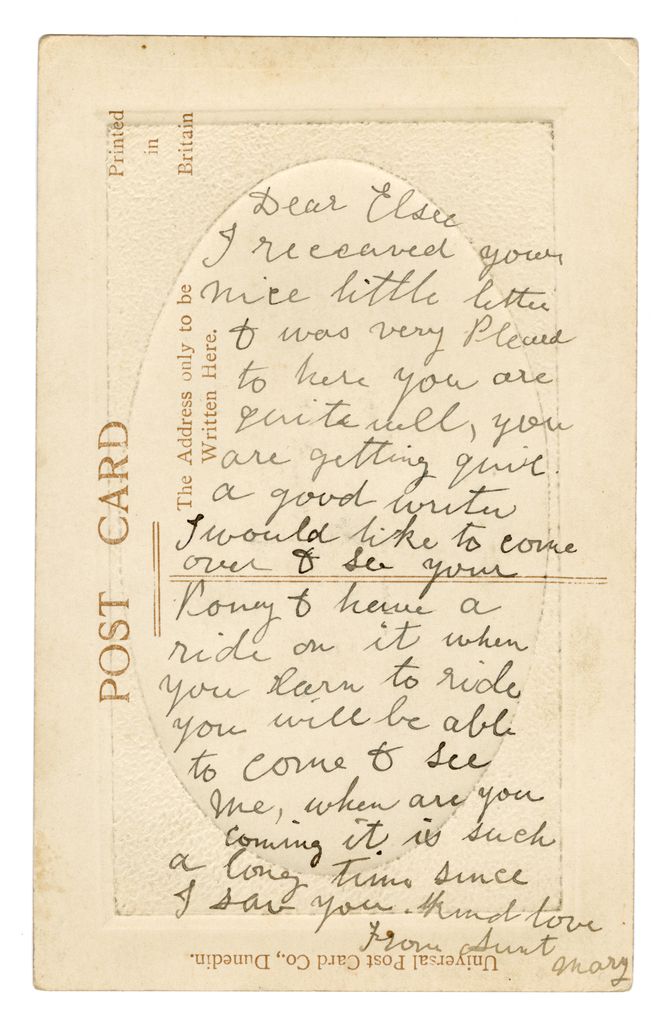 Printed
in
Britain
The Address only to be
Written Here.
POST CARD
Dear Elsee
I receaved your
nice little letter
& was very Pleased
to here you are
quite well, you
are getting quite
a good writer
I would like to come
over & see your
Poney & have a
ride on it when
you learn to ride
you will be able
to come & see
me, when are you
coming it is such
a long time since
I saw you. Kind love
From Aunt
Mary
Universal Post Card Co., Dunedin.